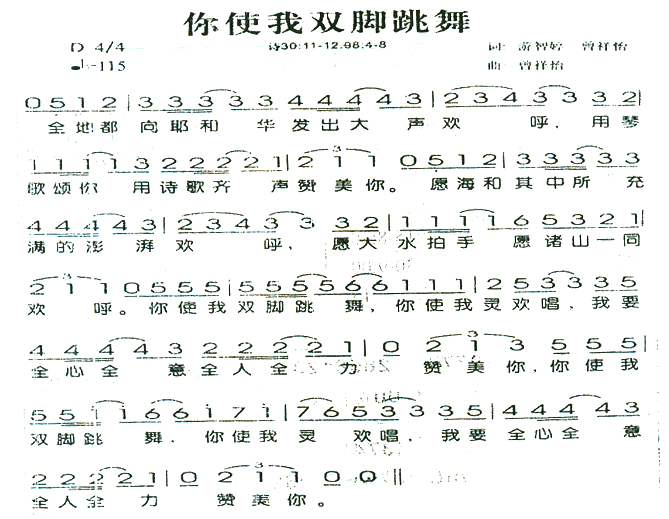 你使我双脚跳舞
D 4/4
诗30:11-12,98:4-8
词: 游智婷 曾祥怡
♩=115
曲: 曾祥怡
0512|33333344443|23433 32|
全地都 向耶和 华发出大 声欢 呼,用琴
11113222221|211 0512|3333333
歌颂你 用诗歌齐 声赞美你。 愿海和其中所 充
44443|23433 32|111165321
满的澎 湃欢 呼, 愿大水拍手 愿诸山一同
211 0555|5555566111|2533335
欢 呼。你使我双脚跳 舞,你使我灵欢唱,我要
44443 22221|0 213 555|
全心全 意全人全 力 赞美你,你使我
5511661171|765333335|44443
双脚跳 舞, 你使我灵 欢唱, 我要全心全 意
22221|0 211 00||
全人全 力 赞美你。